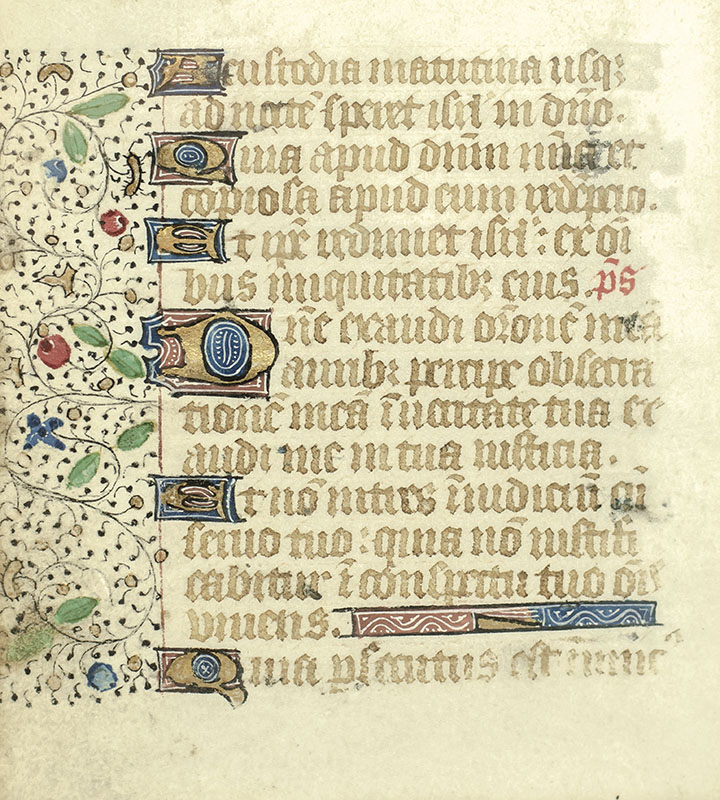 A custodia matutina usq;
ad noctē speret isrl' in dn̄o.
Quia apud dn̄m mia et
copiosa apud eum redēpcio.
Et ip̄e redimet isrl': ex oī
bus iniquitatib; eius. p̄s
Dn̄e exaudi or̄onē meā
aurib; percipe obsecra
tionē meā ī ueritate tua ex
audi me in tua iusticia.
Et nō intres ī iudiciū cū
seruo tuo: quia nō iustifi
cabitur ī conspectu tuo om̄is
viuens.
Quia persecutus est inimic'